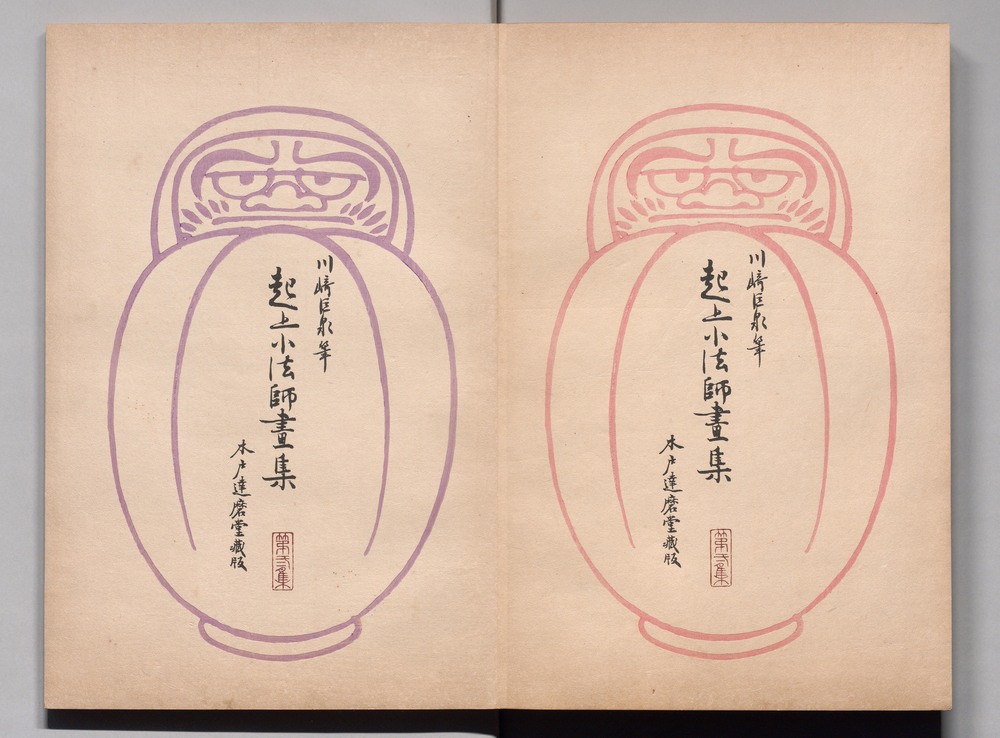 川崎巨泉筆
起上小法師畫集
木戸達磨堂藏版
第弍集
川崎巨泉筆
起上小法師畫集
木戸達磨堂藏版
第弎集